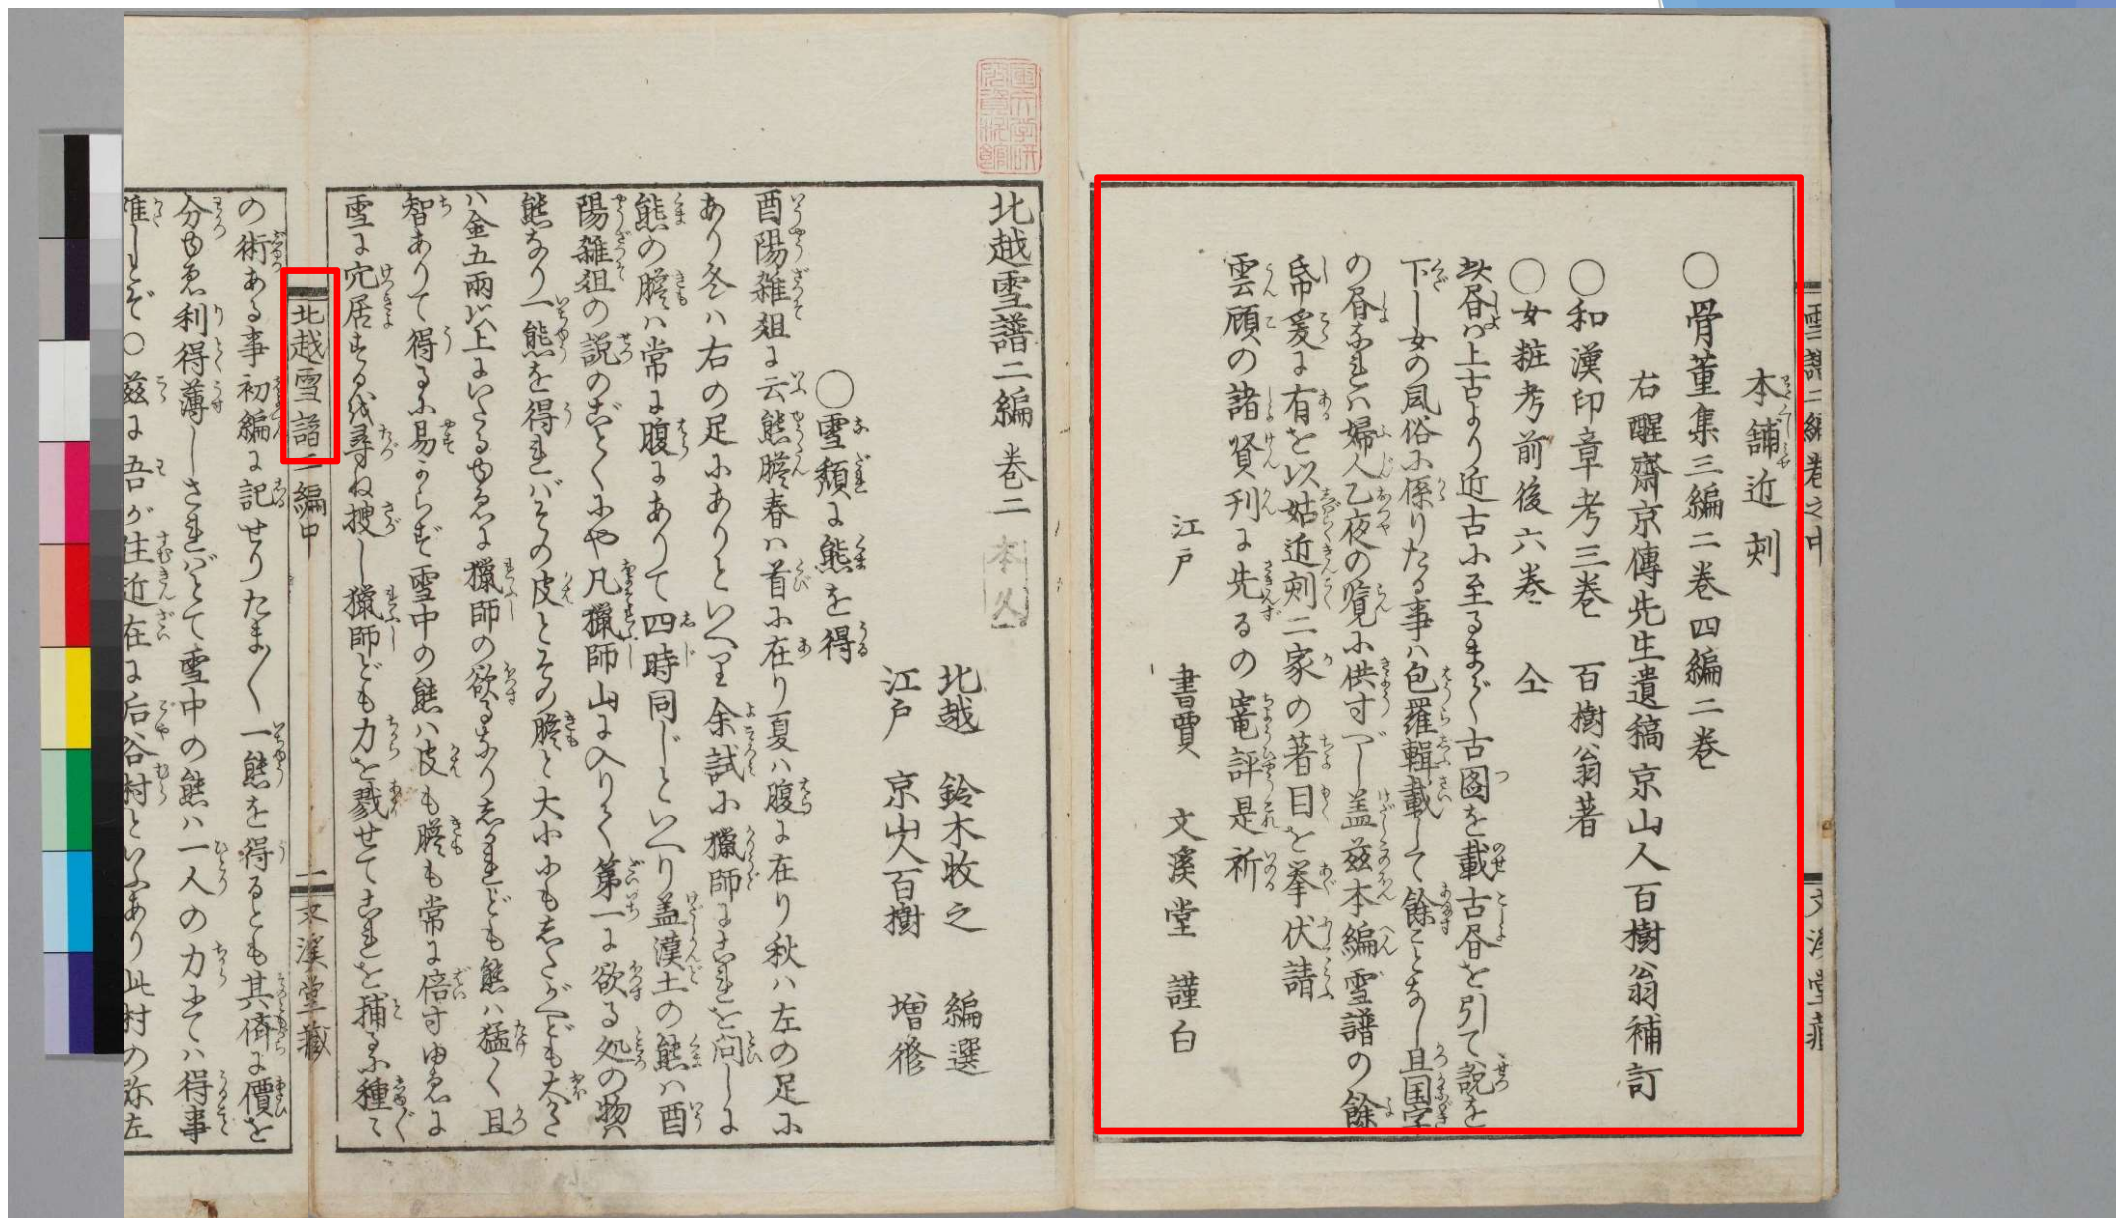 雪譜二編巻之中
文溪堂藏
本舗近刻
〇骨董集三編二巻四編二巻
右醒齋京傳先生遺稿京山人百樹翁補訂
〇和漢印章考三巻 百樹翁著
〇女粧考前後六巻 仝
此書ハ上古より近古に至るまで古圖を載古書を引て説を
下し女の風俗に係りたる事ハ包羅輯載して餘ことなし且国字
の書なれバ婦人乙夜の覧に供すべし盖茲本編雪譜の餘
帋爰に有を以姑近刻二家の著目を挙伏請
雲顧の諸賢刊に先るの竃評是祈
江戸 書賈 文溪堂 謹白
北越雪譜二編巻二
北越 鈴木牧之 編選
江戸 京山人百樹 増修
〇雪頽に熊を得
酉陽雑俎に云熊膽春ハ首に在り夏ハ腹に在り秋ハ左の足に
あり冬ハ右の足にありといへり余試に獵師にこれを問しに
熊の膽ハ常に腹にありて四時同じといへり盖漢土の熊ハ酉
陽雑俎の説のごとくにや凡獵師山に入りて第一に欲る処の物ハ
熊なり一熊を得れバその皮とその膽と大小にもしたがへども大かた
ハ金五兩以上にいたるゆゑに獵師の欲るなりしかれども熊ハ猛く且
智ありて得るに易からず雪中の熊ハ皮も膽も常に倍すゆゑに
雪に穴居するを尋ね捜し獵師ども力を戮せてこれを捕るに種〻
北越雪譜二編中
一
文溪堂藏
の術ある事初編に記せりたま〱一熊を得るとも其儕に價を
分ゆゑ利得薄しさればとて雪中の熊ハ一人の力にてハ得事
難しとぞ〇茲に吾が住近在に后谷村といふあり此村の弥左